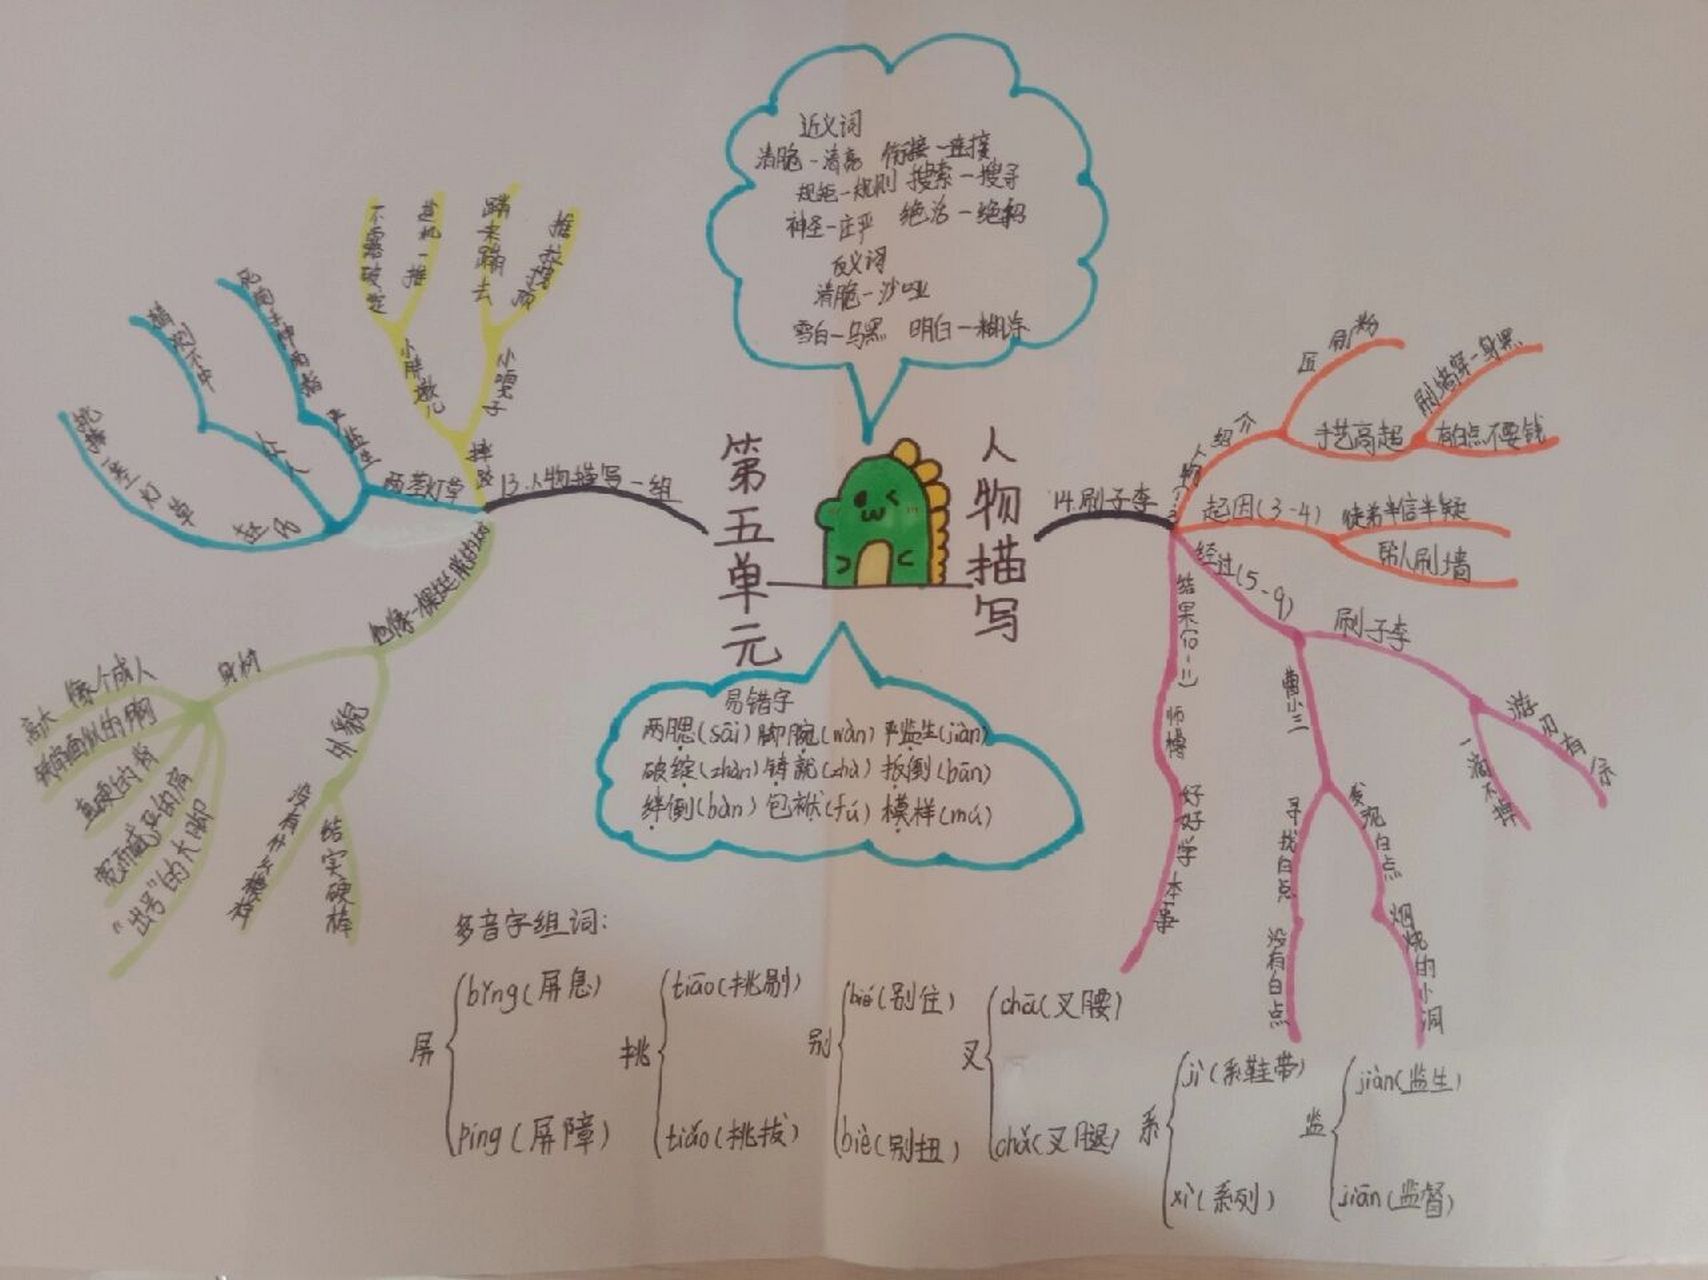 近义词
清脆-清亮 衔接-连接
规矩-规则 搜索-搜寻
神圣-庄严 绝活-绝招
反义词
清脆-沙哑
雪白-乌黑 明白-糊涂
第五单元
人物描写
13.人物描写一组
摔跤
小胖墩儿
不露破绽
趁机一推
小嘎子
蹦来蹦去
推拉拽顶
两茎灯草
严监生
众人
猜测不中
赵氏
挑掉一茎灯草
他像一棵挺脱的树
身材
高大 像个成人
铁扇面似的胸
直硬的背
宽而威严的肩
“出号”的大脚
外貌
没有什么模样
结实硬棒
14.刷子李
人物介绍
粉刷匠
手艺高超
刷墙穿一身黑
有白点不要钱
起因(3-4)
徒弟半信半疑
帮人刷墙
经过(5-9)
刷子李
游刃有余
一滴不掉
曹小三
寻找白点
没有白点
发现白点
烟烧的小洞
结果(10-11)
师傅
好好学本事
易错字
两腮(sāi) 脚腕(wàn) 严监生(jiàn)
破绽(zhàn) 铸就(zhù) 扳倒(bān)
绊倒(bàn) 包袱(fú) 模样(mú)
多音字组词:
屏
bǐng(屏息)
píng(屏障)
挑
tiāo(挑剔)
tiǎo(挑拨)
别
bié(别住)
biè(别扭)
叉
chā(叉腰)
chǎ(叉腿)
系
jì(系鞋带)
xì(系列)
监
jiàn(监生)
jiān(监督)